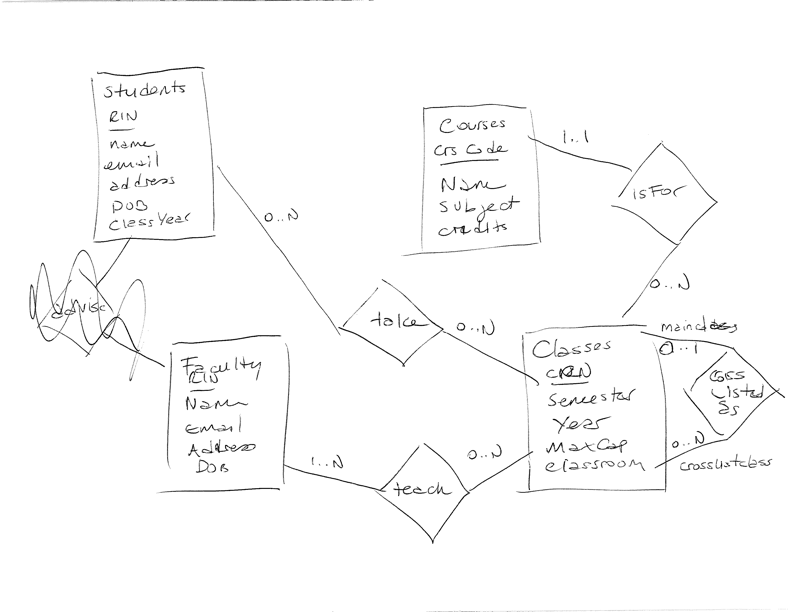 Students
RIN
name
email
address
DOB
ClassYear
Courses
Crs Code
Name
Subject
credits
1..1
isFor
0..N
0..N
advise
take
0..N
Faculty
RIN
Name
Email
Address
DOB
1..N
teach
0..N
Classes
CRN
Semester
Year
MaxCap
classroom
mainclass
0..1
Cross
Listed
as
0..N
crosslistclass